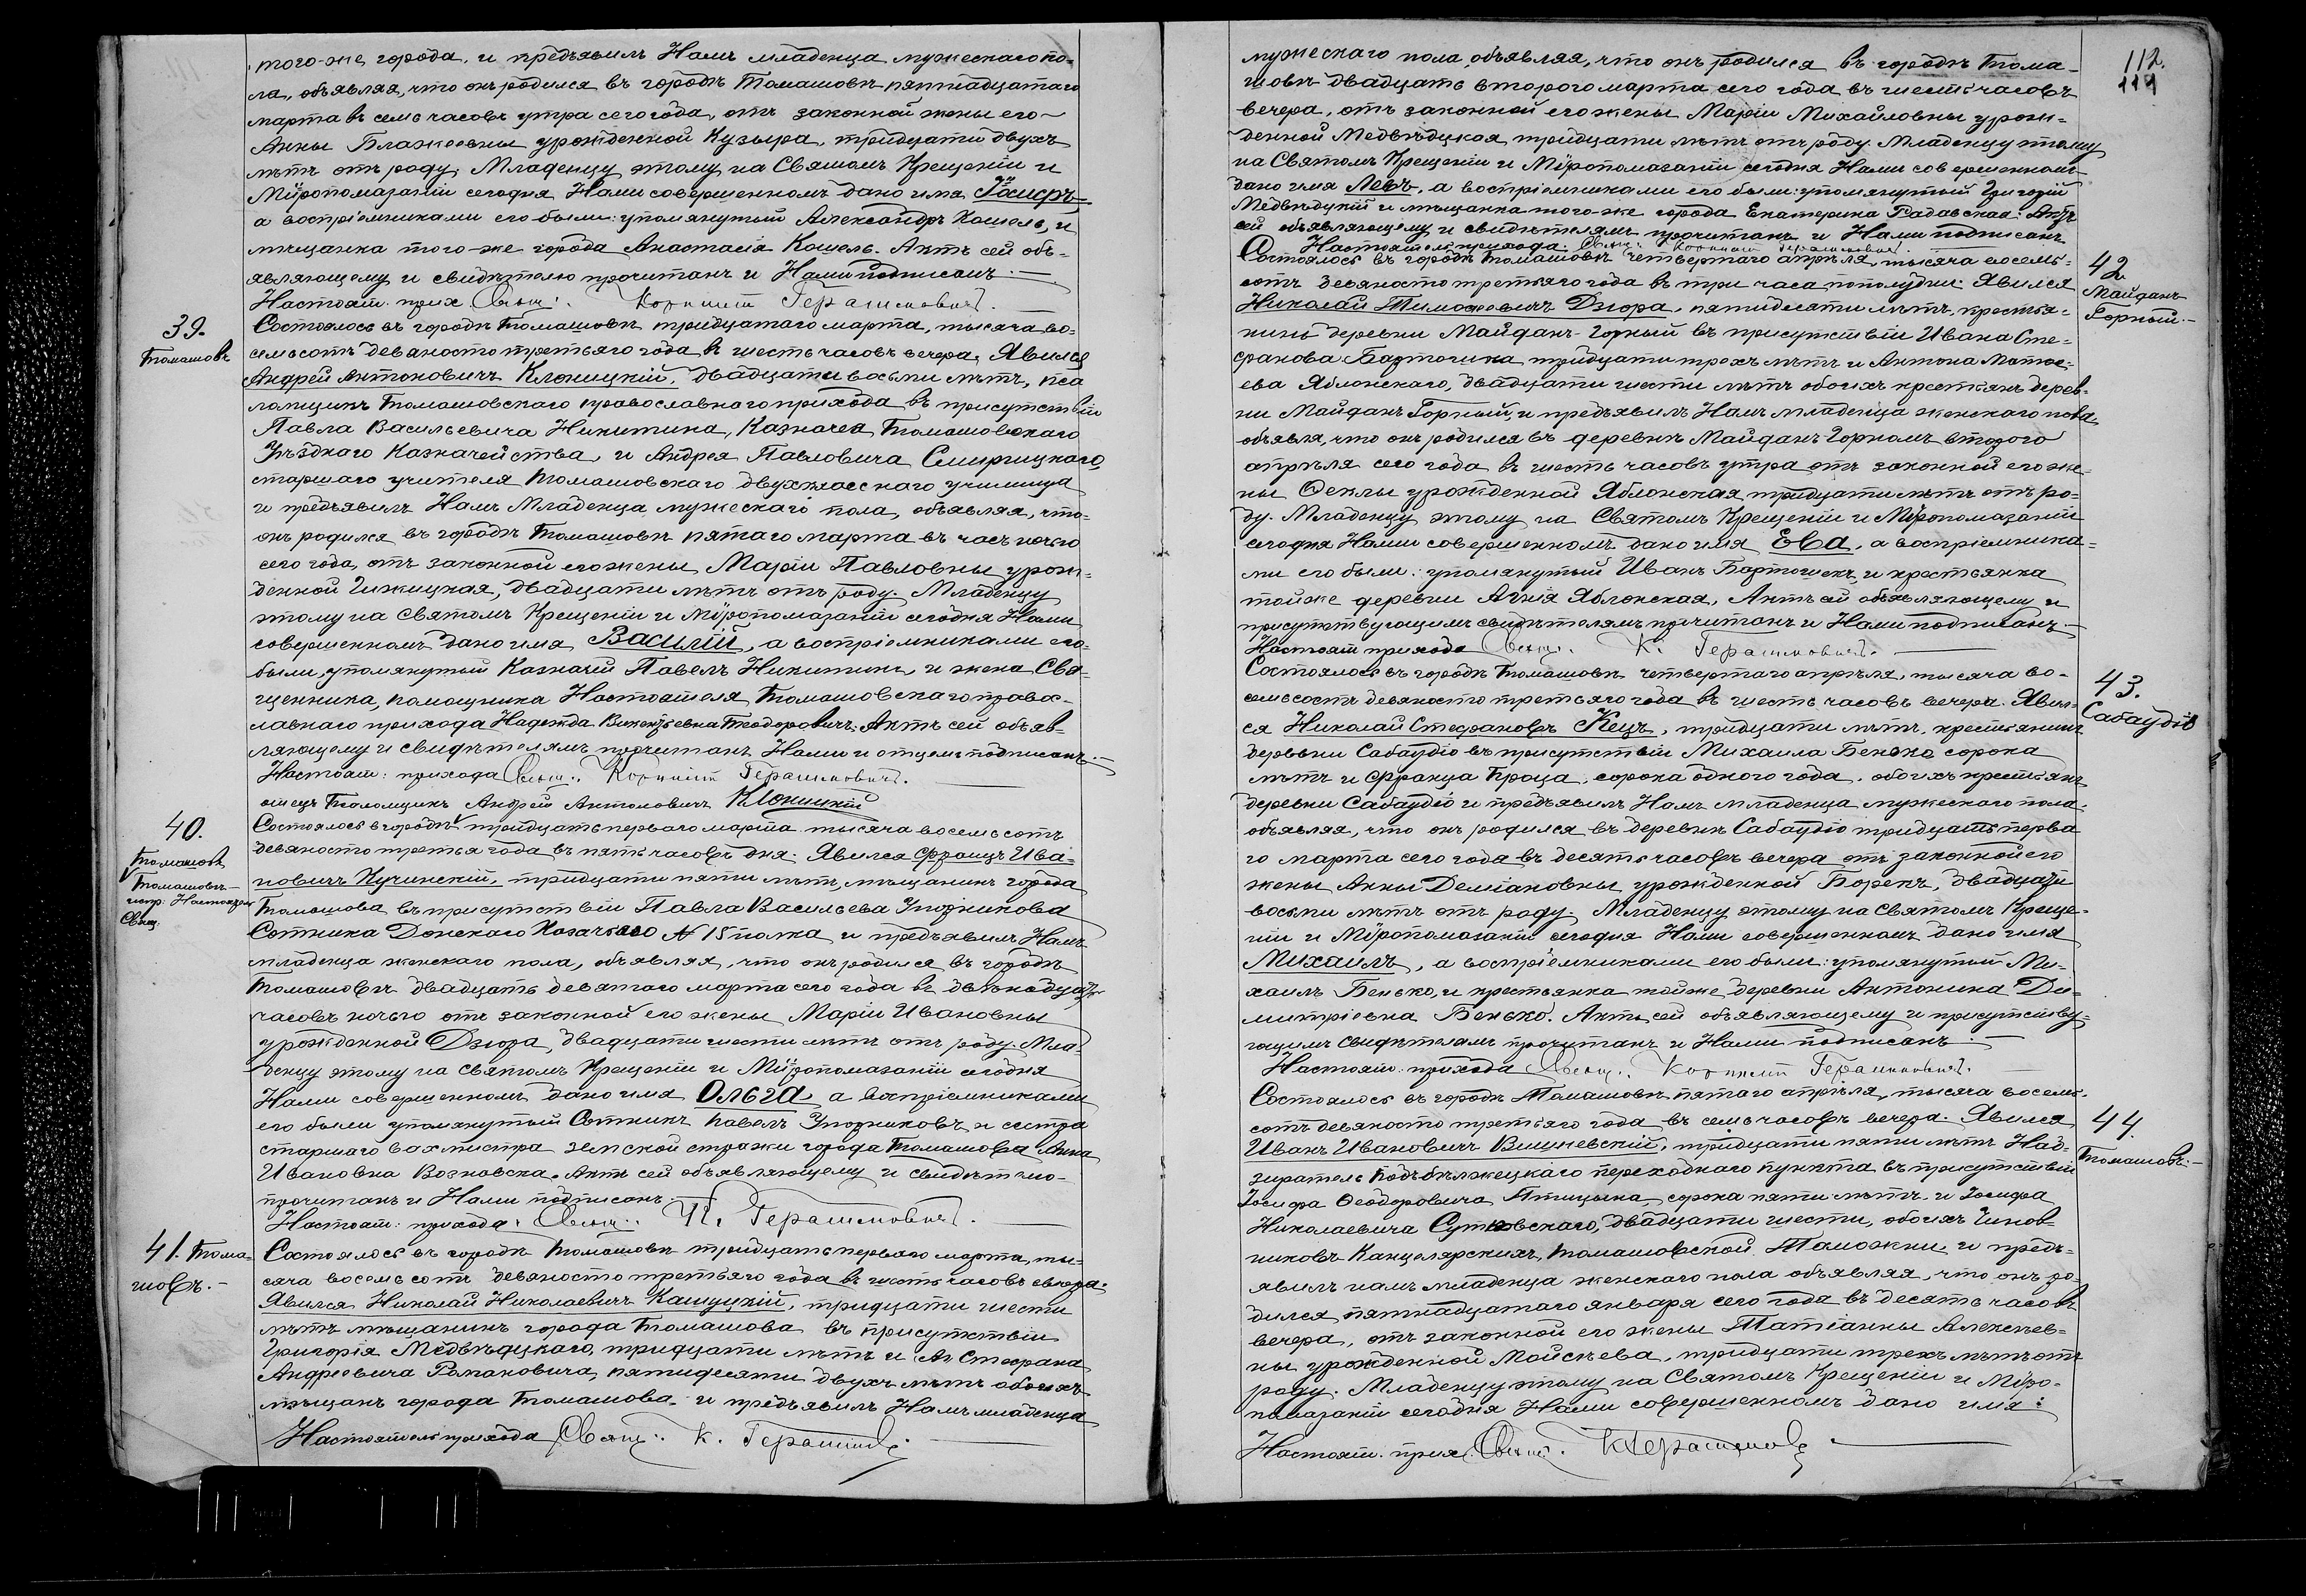 того-же города, и предъявилъ Намъ младенца мужескаго по-
ла, объявляя, что онъ родился въ городѣ Томашовѣ пятнадцатаго
марта въ семь часовъ утра сего года, отъ законной жены его
Анны Блажеевны урожденной Кузыра, тридцати двухъ
лѣтъ отъ роду. Младенцу этому на Святомъ Крещеніи и
Мѵропомазаніи сегодня Нами совершенномъ дано имя
а воспріемниками его были: упомянутый Александръ Кошель, и
мѣщанка того-же города Анастасія Кошель. Актъ сей объ-
являющему и свидѣтелю прочитанъ и Нами подписанъ.
Настоят. прих. Свящ. Корнилій Герашиновичъ.
39.
Томашовъ
Состоялось въ городѣ Томашовѣ тридцатаго марта, тысяча во-
семьсотъ девяносто третьяго года въ шесть часовъ вечера. Явился
Андрей Антоновичъ Клоницкій, двадцати восьми лѣтъ, пса
ломщикъ Томашовскаго православнаго прихода въ присутствіи
Павла Васильевича Никитина, Казначея Томашовскаго
Уѣзднаго Казначейства, и Андрея Павловича
старшаго учителя Томашовскаго двухкласснаго училища
и предъявилъ Намъ Младенца мужескаго пола, объявляя, что
онъ родился въ городѣ Томашовѣ пятаго марта въ часъ ночью
сего года, отъ законной его жены Маріи Павловны урож-
денной Гижицкая, двадцати лѣтъ отъ роду. Младенцу
этому на Святомъ Крещеніи и Мѵропомазаніи сегодня Нами
совершенномъ дано имя Василій, а воспріемниками его
были, упомянутый Казначей Павелъ Никитинъ, и жена Свя-
щенника, помощника Настоятеля Томашовскаго правос-
лавнаго прихода Надежда Викентьевна Теодоровичъ. Актъ сей объяв-
ляющему и свидѣтелямъ прочитанъ Нами и отцемъ подписанъ.
Настоят: прихода Свящ. Корнилій Герашиновичъ.
отецъ Псаломщикъ Андрей Антоновичъ Клоницкій
40.
Томашовъ
Томашовъ
испр. Настоятел
Свящ
Состоялось въ городѣ тридцать перваго марта тысяча восемьсотъ
девяносто третья года въ пять часовъ дня. Явился Францъ Ива-
новичъ Кучинскій, тридцати пяти лѣтъ, мѣщанинъ города
Томашова въ присутствіи Павла Васильева Упорникова
Сотника Донскаго Казачьяго № 15 полка и предъявилъ Намъ
младенца женскаго пола, объявляя, что онъ родился въ городѣ
Томашовѣ двадцать девятаго марта сего года въ двѣнадцать
часовъ ночью отъ законной его жены Маріи Ивановны
урожденной Дзюра, двадцати шести лѣтъ отъ роду. Мла-
денцу этому на Святомъ Крещеніи и Мѵропомазаніи сегодня
Нами совершенномъ дано имя Ольга а воспріемниками
его были упомянутый Сотникъ Павелъ Упорниковъ и сестра
старшаго вахмистра земской стражи города Томашова Анна
Ивановна Возновска. Актъ сей объявляющему и свидѣтелю
прочитанъ и Нами подписанъ.
Настоят: прихода. Свящ. К. Герашиновичъ.
41. Тома-
шовъ.
Состоялось въ городѣ Томашовѣ тридцать перваго марта, ты-
сяча восемьсотъ девяносто третьяго года въ шесть часовъ вечера.
Явился Николай Николаевичъ Кашуцкій, тридцати шести
лѣтъ мѣщанинъ города Томашова въ присутствіи
Григорія Медвѣдцкаго, тридцати лѣтъ и Стефана
Андреевича Романовича, пятидесяти двухъ лѣтъ обоихъ
мѣщанъ города Томашова, и предъявилъ Намъ младенца
Настоятель прихода Свящ. К. Герашинов
112.
мужескаго пола, объявляя, что онъ родился въ городѣ Тома-
шовѣ двадцать втораго марта сего года въ шесть часовъ
вечера, отъ законной его жены Маріи Михайловны урож-
денной Медвѣдцкая, тридцати лѣтъ отъ роду. Младенцу этому
на Святомъ Крещеніи и Мѵропомазаніи сегодня Нами совершенномъ
дано имя Левъ, а воспріемниками его были: упомянутый Григорій
Медвѣдцкій и мѣщанка того-же города Екатерина Радавская. Актъ
сей объявляющему и свидѣтелямъ прочитанъ и Нами подписанъ
Настоятель прихода. Свящ. Корнилій Герашиновичъ.
42
Майданъ
Горный.
Состоялось въ городѣ Томашовѣ четвертаго апрѣля, тысяча восемь-
сотъ девяносто третьяго года въ три часа пополудни. Явился
Николай Тимофеевичъ Дзюра, пятидесяти лѣтъ, крестья-
нинъ деревни Майданъ-Горный въ присутствіи Ивана Сте-
фанова Бартошика тридцати трехъ лѣтъ и Антона Матѳе-
ева Яблонскаго, двадцати шести лѣтъ обоихъ крестьянъ дерев-
ни Майданъ Горный, и предъявилъ Намъ младенца женскаго пола
объявля, что онъ родился въ деревнѣ Майданъ Горномъ втораго
апрѣля сего года въ шесть часовъ утра отъ законной его же-
ны Ѳеклы урожденной Яблонская тридцати лѣтъ отъ ро-
ду. Младенцу этому на Святомъ Крещеніи и Мѵропомазаніи
сегодня Нами совершенномъ дано имя Ева, а воспріемника-
ми его были: упомянутый Иванъ Бартошикъ, и крестьянка
той же деревни Агнія Яблонская, Актъ сей объявляющему и
присутствующимъ свидѣтелямъ прочитанъ и Нами подписанъ
Настоят прихода Свящ. К. Герашиновичъ.
43.
Сабаудіо
Состоялось въ городѣ Томашовѣ четвертаго апрѣля, тысяча во-
семьсотъ девяносто третьяго года въ шесть часовъ вечера. Явил-
ся Николай Стефановъ Кецъ, тридцати лѣтъ, крестьянинъ
деревни Сабаудіо въ присутствіи Михаила Бенько сорока
лѣтъ и Франца Проца, сорока одного года, обоихъ крестьянъ
деревни Сабаудіо и предъявилъ Намъ младенца мужескаго пола.
объявляя, что онъ родился въ деревнѣ Сабаудіо тридцать перва
го марта сего года въ десять часовъ вечера отъ законной его
жены Анны Деміановны урожденной Борекъ, двадцати
восьми лѣтъ отъ роду. Младенцу этому на Святомъ Креще-
ніи и Мѵропомазаніи сегодня Нами совершенномъ дано имя
Михаилъ, а воспріемниками его были: упомянутый Ми-
хаилъ Бенько, и крестьянка той же деревни Антонина Ди-
митріевна Бенько. Актъ сей объявляющему и присутству-
ющимъ свидѣтелямъ прочитанъ и Нами подписанъ.
Настоят. прихода Свящ. Корнилій Герашиновичъ.
44.
Томашовъ.
Состоялось въ городѣ Томашовѣ пятаго апрѣля, тысяча восемь-
сотъ девяносто третьяго года въ семь часовъ вечера. Явился
Иванъ Ивановичъ Вишневскій, тридцати пяти лѣтъ Над-
зиратель Подъбѣлжецкаго переходнаго пункта въ присутствіи
Іосифа Ѳеодоровича Птицына сорока пяти лѣтъ и Іосифа
Николаевича Сутковскаго, двадцати шести, обоихъ Чинов-
никовъ Канцелярскихъ, Томашовской Таможни, и предъ-
явилъ намъ младенца женскаго пола объявляя, что онъ ро-
дился пятнадцатаго января сего года въ десять часовъ
вечера, отъ законной его жены Татіанны Алексѣев-
ны урожденной Мойсѣева, тридцати трехъ лѣтъ отъ
роду. Младенцу этому на Святомъ Крещеніи и Мѵро-
помазаніи сегодня Нами совершенномъ дано имя:
Настоят. прих. Свящ. К Герашинов